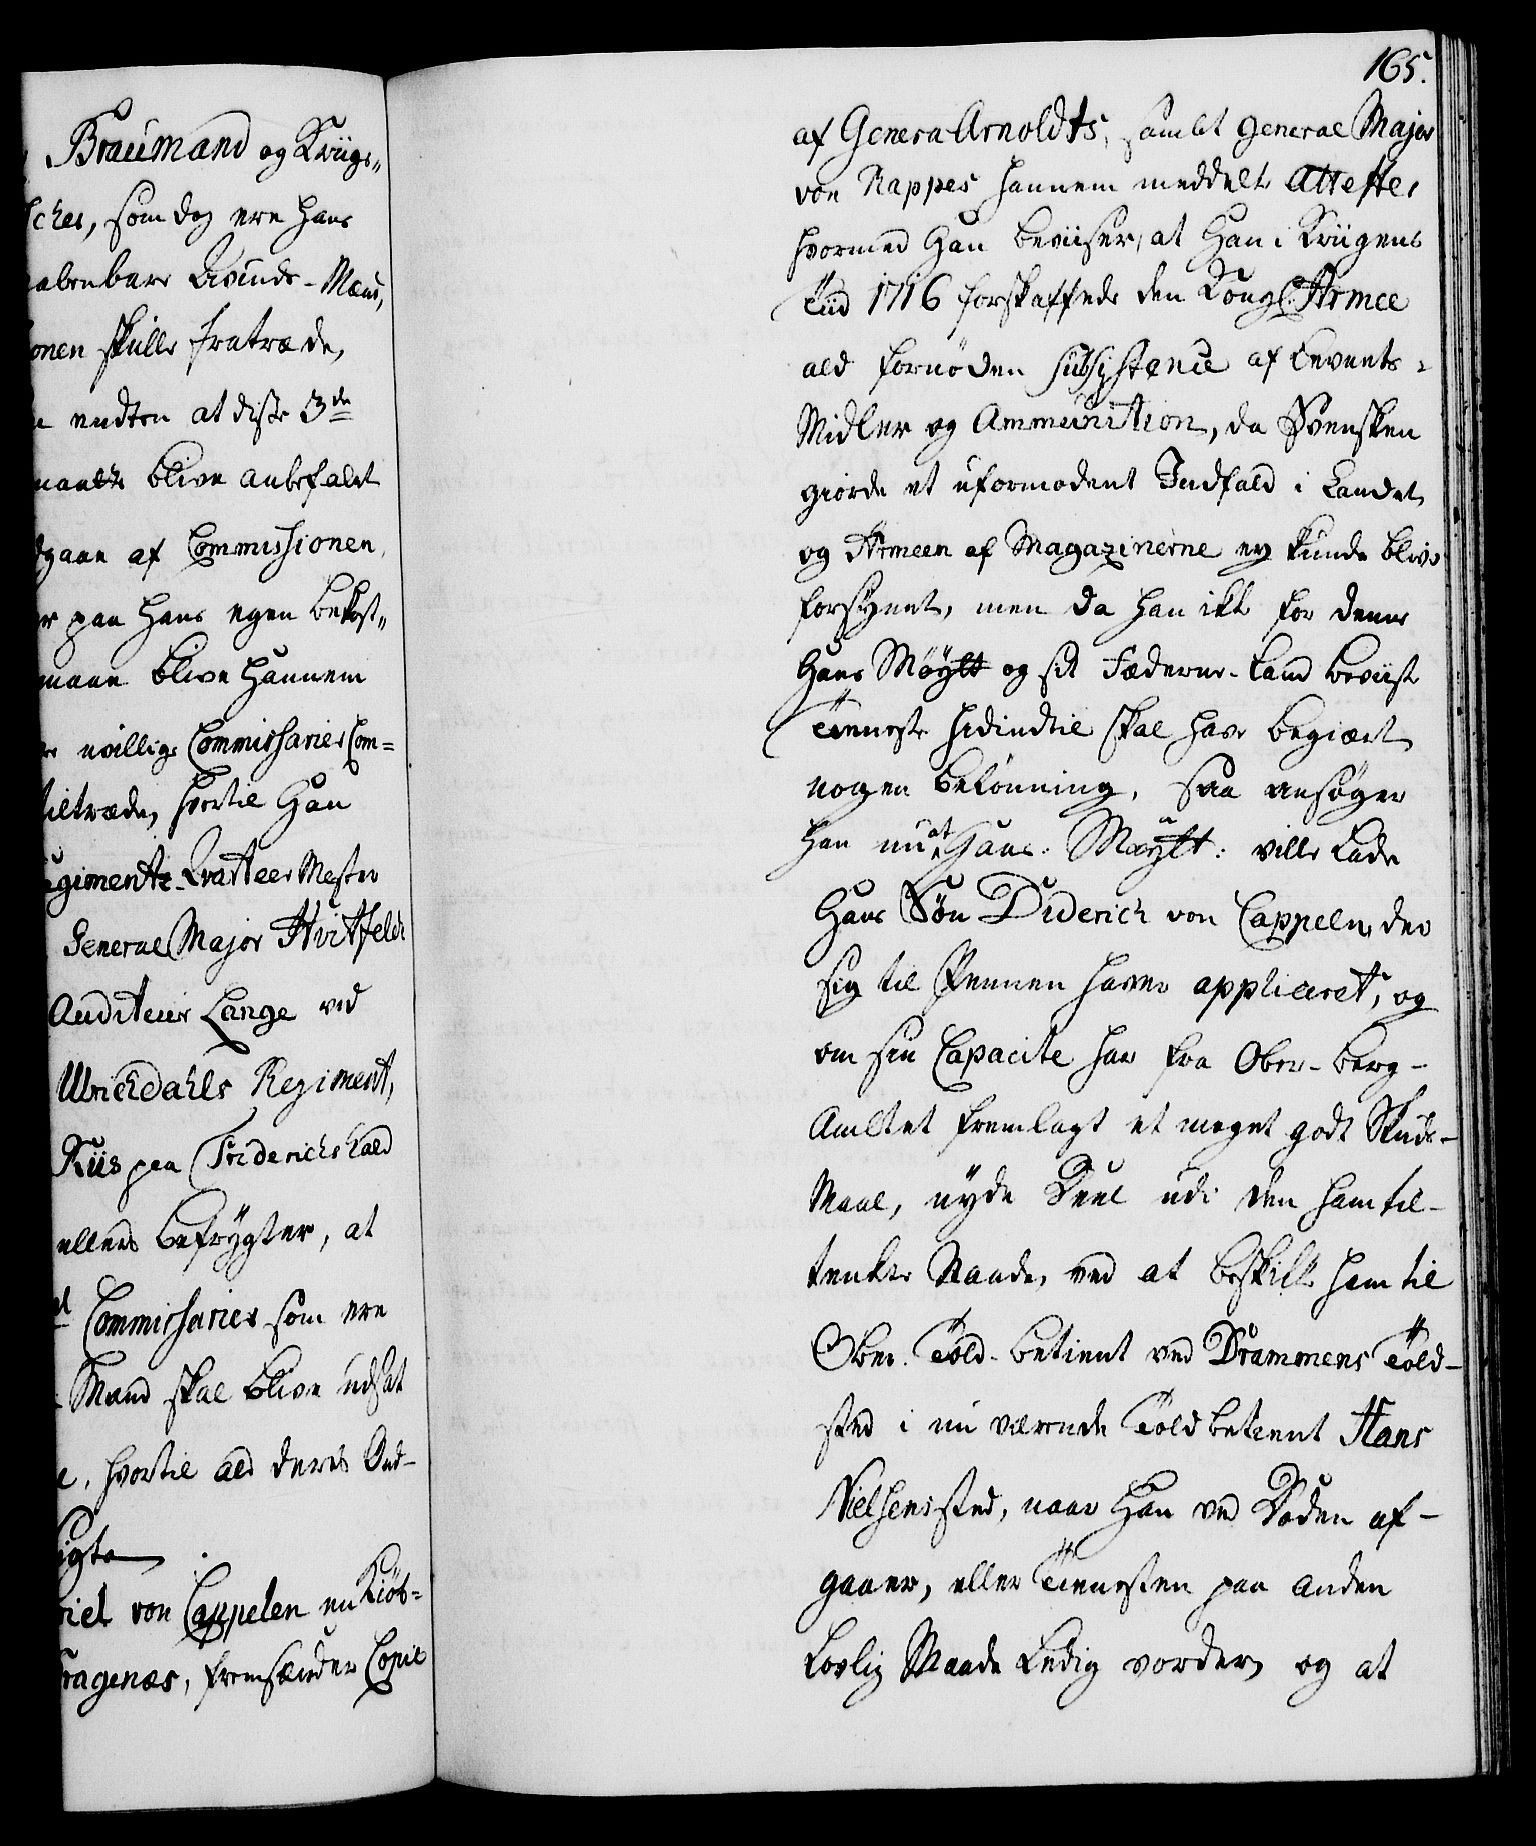 Braumand og Kriigs„
ches, som dog ere hans
abenbare Avinds-Mænd,
onen skulle fratræde,
endten at disse 3de
blive anbefalet
dgaae af Commissionen,
r paa Hans egen bekost„
maae blive Hannem
uvillige Commissarier Com=
tiltræde, hvortil Han
egiments-Qvarteer Mester
General Major Hvitfeldt
Auditeur Lange ved
Ulrichdahls Regiment,
Riis paa Friderichshald
ellers befrygter, at
Commissarier som ere
Mand skal blive udsat
e, hvortil ald deres Ond-
igte
riel von Cappelen en Kiøb=
ragenæs, fremsænder Copie
165.
af Genera Arnoldts, samlet General Major
von Kappes hannem meddelte Attester
hvormed Han beviiser, at Han i Kriigens
Tiid 1716 forskaffede den Kongl: Armee
ald fornøden subsistence af Levnets=
Midler og Ammunition, da Svensken
giorde et uformodent Indfald i Landet,
og Armeen af Magazinerne ey kunde blive
forsynet, men da han ikke for denne
Hans Maytt og sit Fæderne-Land beviiste
Tieneste hidindtil skal have begiært
nogen belønning, saa ansøger
han nu at Hans: Maytt: ville lade
Hans Søn Diderich von Cappelen, der
sig til Pennen haver appliceret, og
om sin Capacite har fra Ober-berg-
Amtet fremlagt et meget godt Skuds-
Maal, nyde Deel udi den ham til-
tenkte Naade, ved at beskikke ham til
Ober-Told-betient ved Drammens Told-
sted i nu værende Toldbetient Hans
Nielsens sted, naar Han ved Døden af-
gaaer, eller Tienesten paa anden
Lovlig Maade Ledig vorder, og at